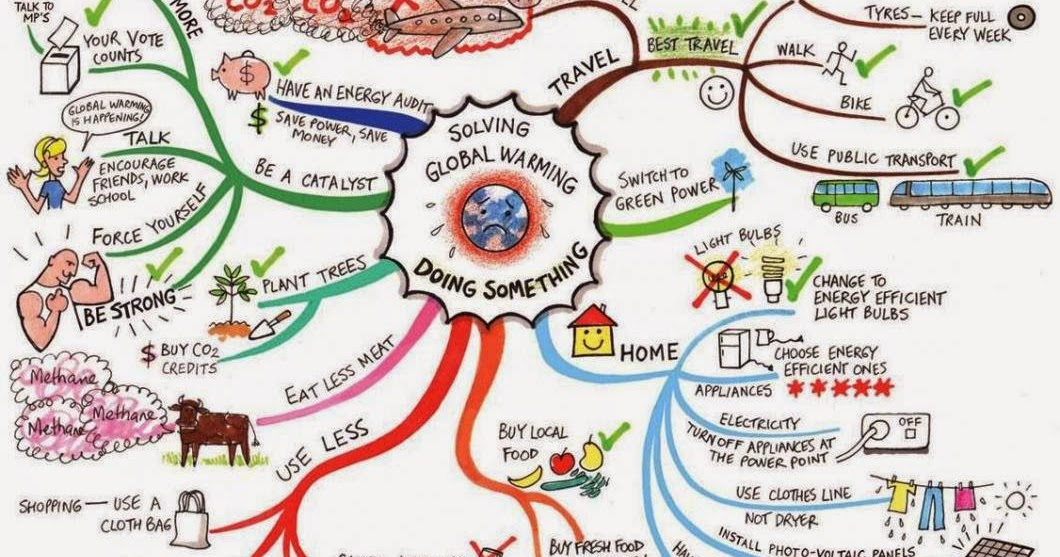 TALK TO
MP'S
YOUR VOTE
COUNTS
MORE
CO2 CO2
TYRES — KEEP FULL
EVERY WEEK
BEST TRAVEL
TRAVEL
WALK
BIKE
USE PUBLIC TRANSPORT
BUS
TRAIN
HAVE AN ENERGY AUDIT
$ SAVE POWER, SAVE
MONEY
GLOBAL WARMING
IS HAPPENING!
TALK
ENCOURAGE
FRIENDS, WORK
SCHOOL
BE A CATALYST
FORCE YOURSELF
BE STRONG
SOLVING
GLOBAL WARMING
DOING SOMETHING
SWITCH TO
GREEN POWER
PLANT TREES
$ BUY CO2
CREDITS
LIGHT BULBS
CHANGE TO
ENERGY EFFICIENT
LIGHT BULBS
HOME
CHOOSE ENERGY
EFFICIENT ONES
APPLIANCES
EAT LESS MEAT
Methane
Methane
Methane
ELECTRICITY
OFF
TURN OFF APPLIANCES AT
THE POWER POINT
USE LESS
BUY LOCAL
FOOD
USE CLOTHES LINE
NOT DRYER
SHOPPING — USE A
CLOTH BAG
BUY FRESH FOOD
INSTALL PHOTO-VOLTAIC PANELS